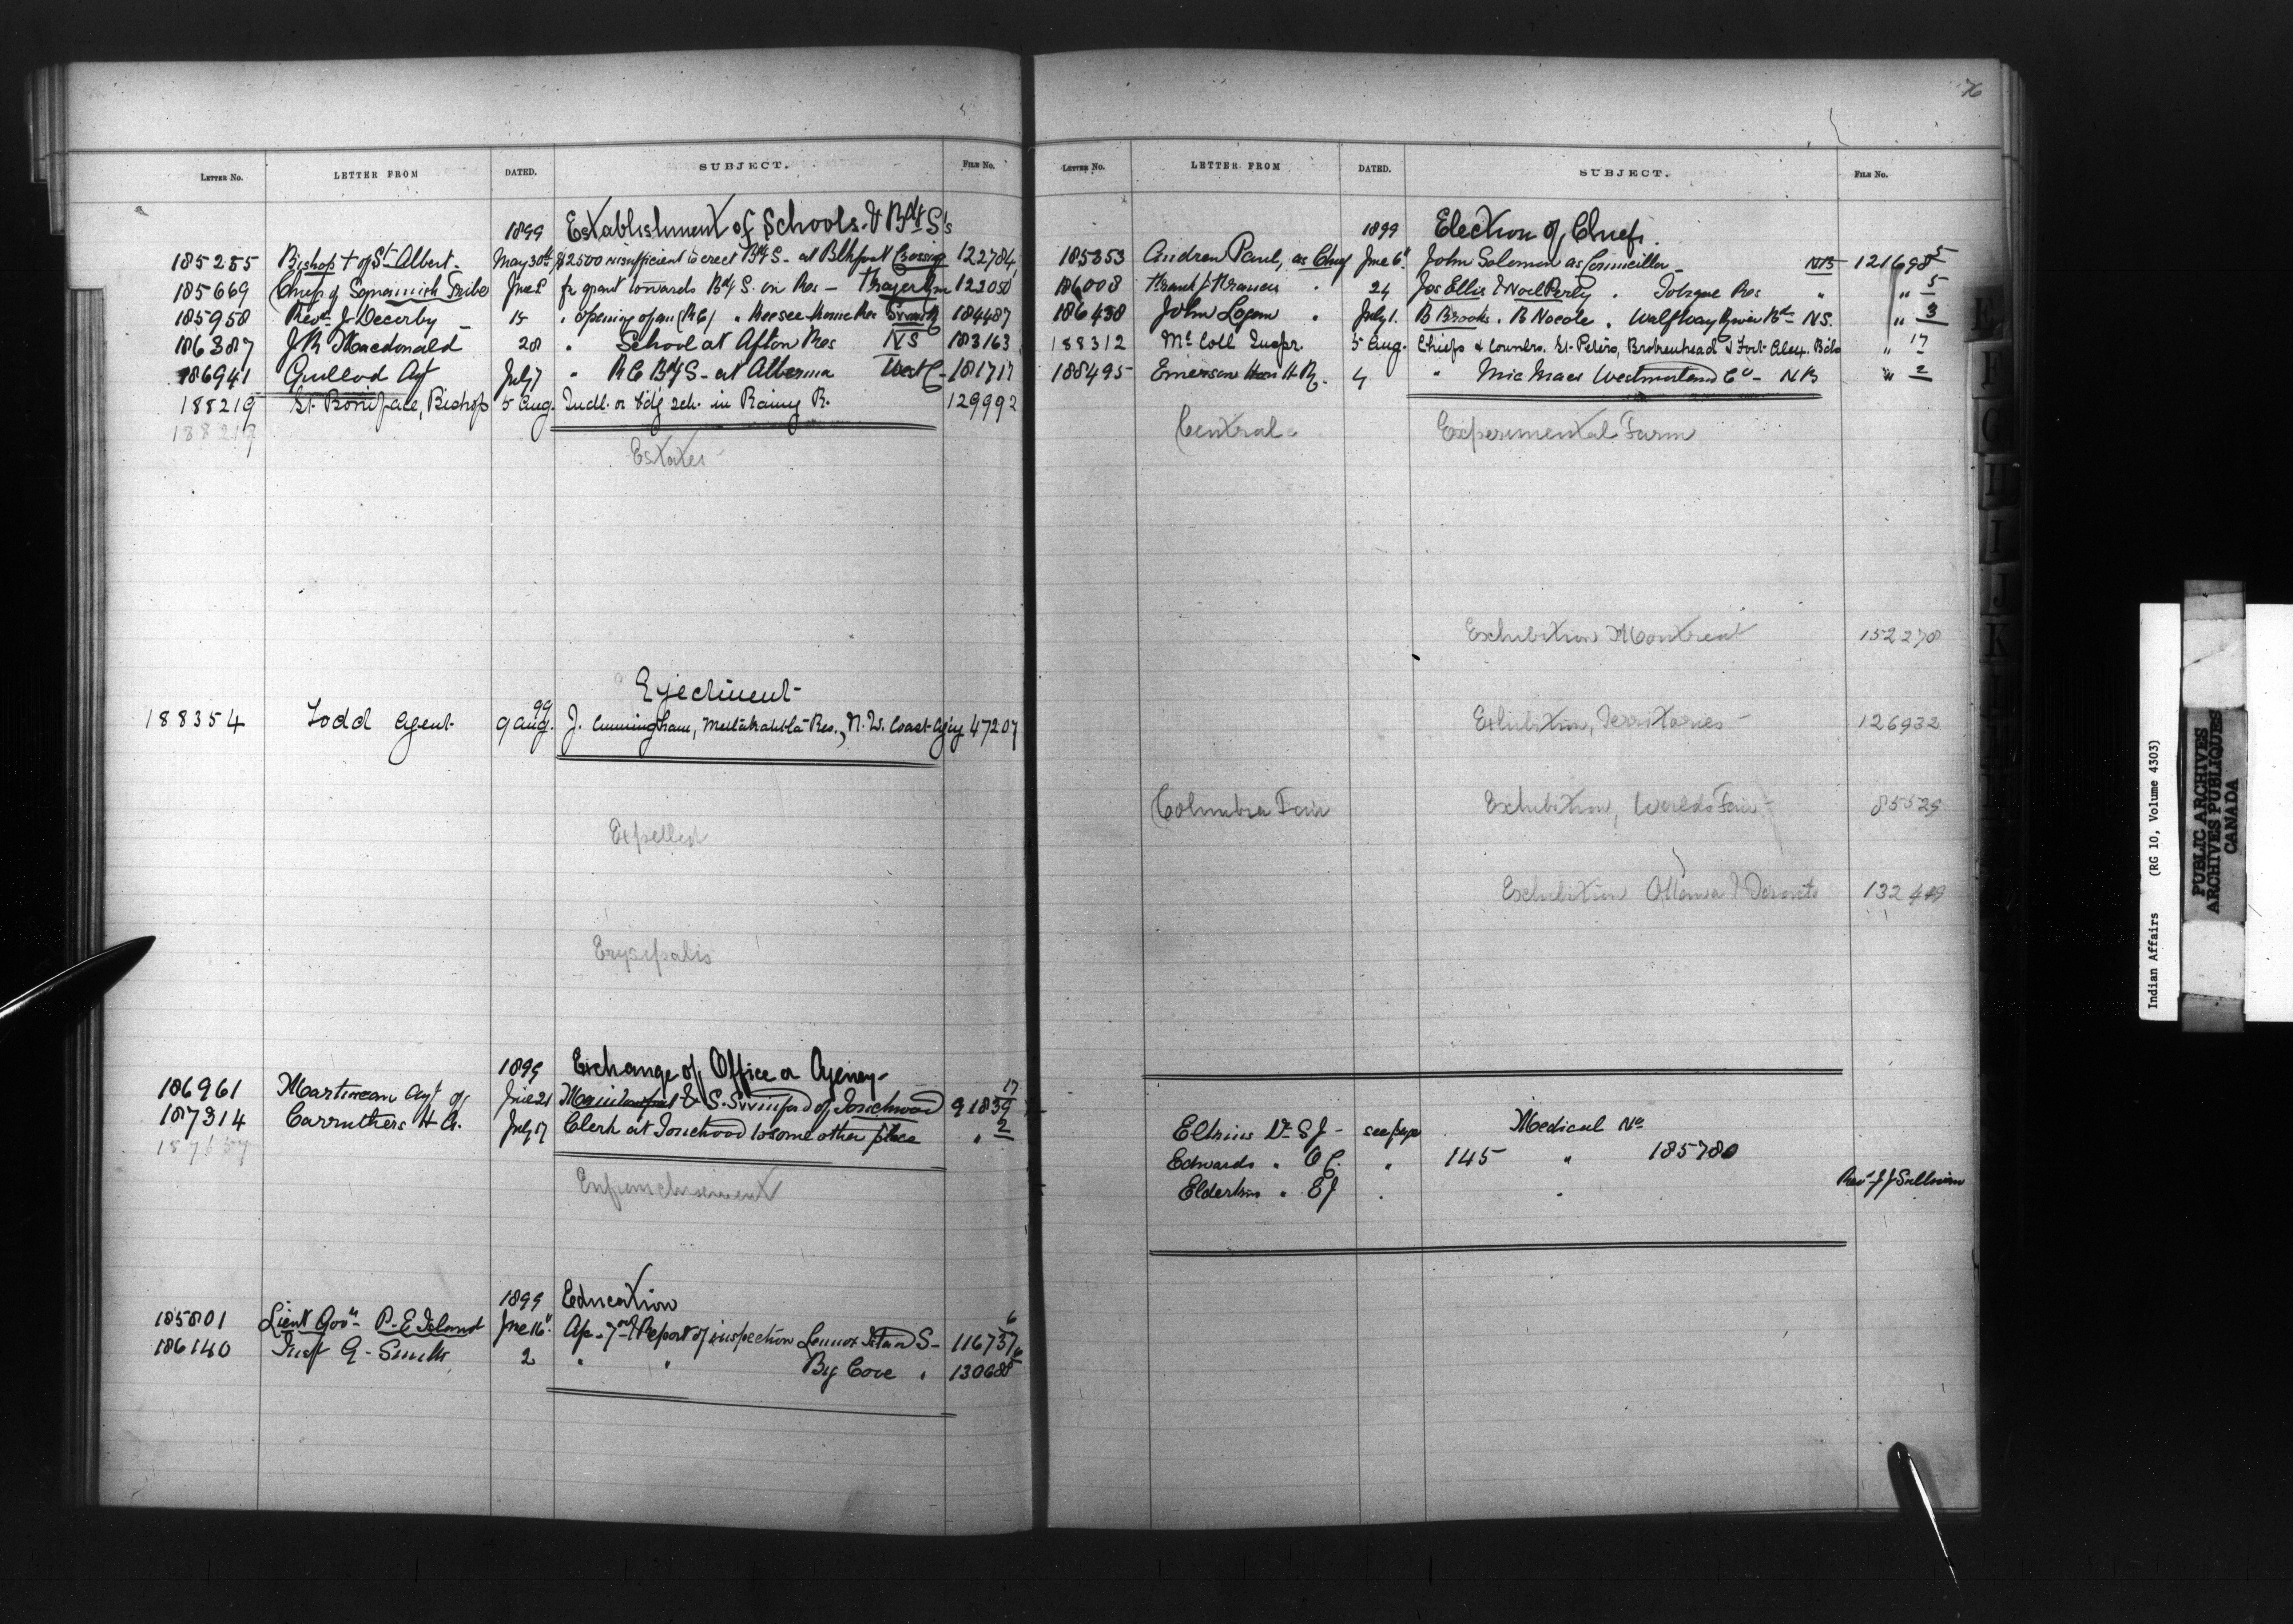 76
LETTER NO. LETTER FROM DATED. SUBJECT. FILE NO.
1899 Establishment of Schools. & Bdg S's
185255 Bishop + of St Albert May 30th $2500 insufficient to erect Bdg S- at Blkfoot Crossing 122784
185669 Chiefs of Squamish Tribe June 8 fr grant towards Bdg S. on Res - 122050
185958 Revd J. Decorby 15 " opening of an (RC) " Keeseekouse Res 184487
186387 J R Macdonald 28 " School at Afton Res NS 183163
186941 Guillod Agt July 7 " RC Bdg S- at Alberma West C- 181717
188219 St. Boniface, Bishop 5 Aug. Indl. or bdg sch. in Rainy R. 129992
188219
Estates
Ejectment
99
188354 Todd Agent 9 Aug. J. Cunningham, Metlakahtla Res., N.W. Coast Agcy 47207
Expelled
Erysipalis
1899 Exchange of Office or Agency-
186961 Martineau Agt of June 21 & S. Swinford of 91839 17
187314 Carruthers H A. July 17 Clerk at to some other place " 2
Enfranchisement
1899 Education
185801 Lieut Govr P-E Island June 16" Report of inspection Lennox Island S- 116737 6
186140 Insp G- Smith 2 " " Big Cove " 130688
LETTER NO. LETTER FROM DATED. SUBJECT. FILE NO.
1899 Election of Chiefs.
185353 Andrew Paul, as Chief June 6" John Solomon as Councillor - NB 121698 5
186008 Frank Francis " 24 Jos Ellis & Noel Perly " Tobique Res " " 5
186438 John Logan " July 1. B Brooks. R Nocole " Halfway River Bd NS. " 3
188312 McColl Inspr. 5 Aug. Chiefs & Counlrs. St. Peters, Brokenhead & Fort Alex. Bds " 17
188495 Emerson H R. 4 " Mic Macs Westmorland Co - NB " 2
Central Experimental Farm
Exhibition Montreal 152278
Exhibition, Territories - 126932
Columbia Fair Exhibition, Worlds Fair - 85529
Exhibition Ottawa & Toronto 132449
Elkins Dr S J - see page Medical No
Edwards " O C. " 145 " 185780
Elderkin " E J " " Revd J J Sullivan
Indian Affairs (RG 10, Volume 4303)
PUBLIC ARCHIVES
ARCHIVES PUBLIQUES
CANADA